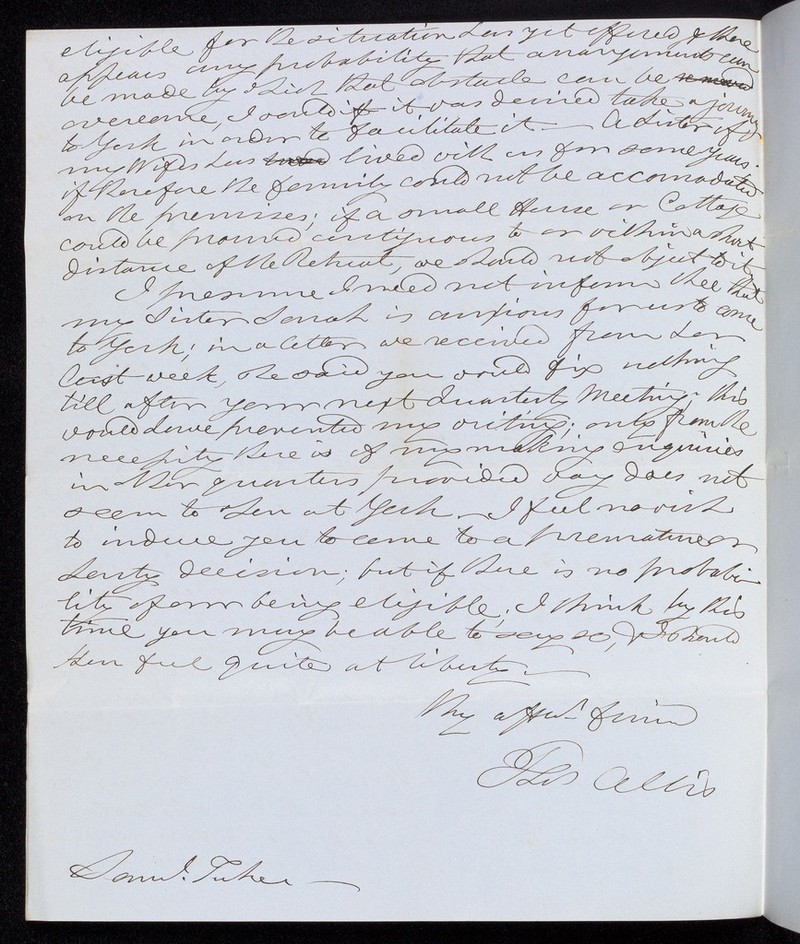 eligible for the situation has yet offered, & there
appears any probability that arrangements can
be made by which that obstacle can be removed
overcome, I would if it was desired take a journey
to York in order to facilitate it — A Sister of
my Wifes has lived with us for some years.
if therefore the family could not be accomodated
on the premises; if a small House or Cottage
could be procured contiguous to or within a short
distance of the Retreat, we should not object to it
I presume I need not inform thee that
my Sister Sarah is anxious for us to come
to York; in a letter we received from her
last week, she said you would fix nothing
till after your next Quarterly Meeting; this
would have prevented my writing; only from the
necessity there is of my making enquiries
in other quarters provided way does not
seem to open at York — I feel no wish
to induce you to come to a premature or
hasty decision; but if there is no probabi-
lity of our being eligible, I think by this
time you may be able to say so, & I should
then feel quite at liberty —
Thy affect. friend
Thos Allis
Saml. Tuke —